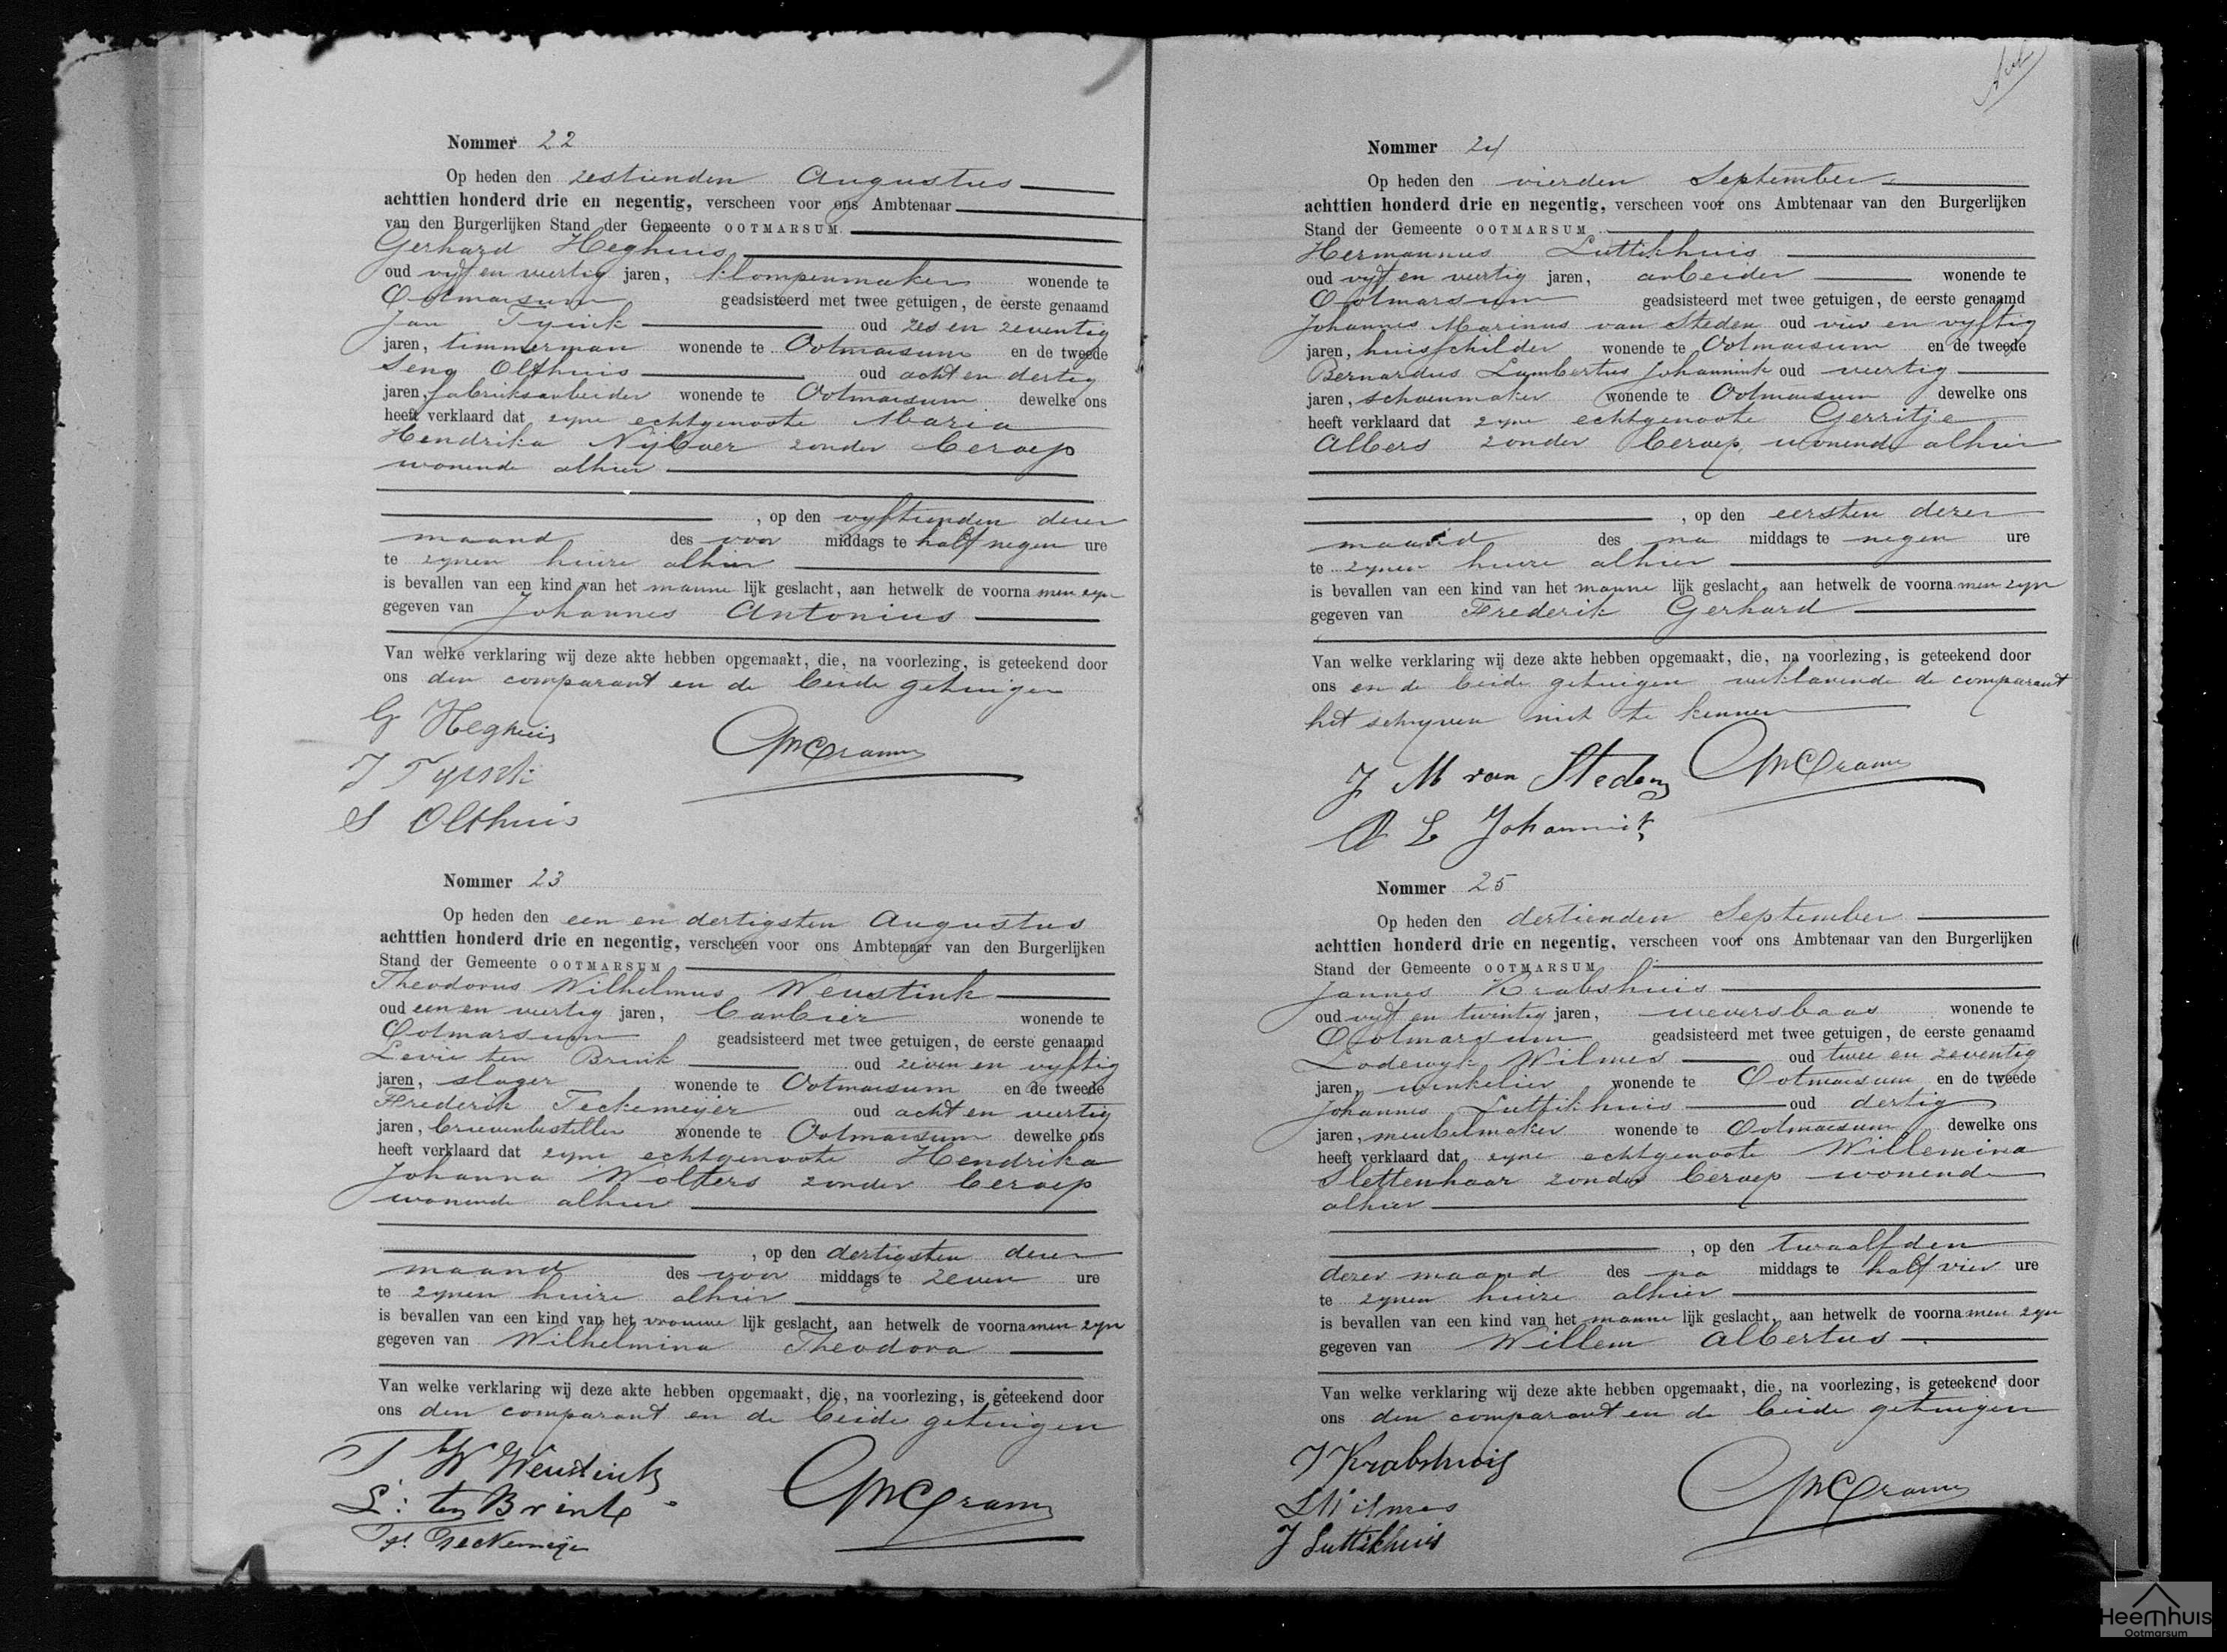 Nommer 22
Op heden den zestienden Augustus
achttien honderd drie en negentig, verscheen voor ons Ambtenaar
van den Burgerlijken Stand der Gemeente OOTMARSUM.
Gerhard Heghuis
oud vyf en veertig jaren, klompenmaker wonende te
Ootmarsum geadsisteerd met twee getuigen, de eerste genaamd
Jan Tyink oud zes en zeventig
jaren, timmerman wonende te Ootmarsum en de tweede
Seno Olthuis oud acht en dertig
jaren, fabrieksarbeider wonende te Ootmarsum dewelke ons
heeft verklaard dat zyne echtgenoote Maria
Hendrika Nijboer zonder beroep
wonende alhier
, op den vyftienden dezer
maand des voor middags te half negen ure
te zynen huize alhier
is bevallen van een kind van het manne lijk geslacht, aan hetwelk de voorna men zyn
gegeven van Johannes Antonius
Van welke verklaring wij deze akte hebben opgemaakt, die, na voorlezing, is geteekend door
ons den comparant en de beide getuigen
G Heghuis
J Tyink
S Olthuis
Nommer 23
Op heden den een en dertigsten Augustus
achttien honderd drie en negentig, verscheen voor ons Ambtenaar van den Burgerlijken
Stand der Gemeente OOTMARSUM
Theodorus Wilhelmus Weustink
oud een en veertig jaren, barbier wonende te
Ootmarsum geadsisteerd met twee getuigen, de eerste genaamd
Levie ten Brink oud zeven en vyftig
jaren, slager wonende te Ootmarsum en de tweede
Frederik Teckemeijer oud acht en veertig
jaren, brievenbesteller wonende te Ootmarsum dewelke ons
heeft verklaard dat zyne echtgenoote Hendrika
Johanna Wolters zonder beroep
wonende alhier
, op den dertigsten dezer
maand des voor middags te zeven ure
te zynen huize alhier
is bevallen van een kind van het vrouwe lijk geslacht, aan hetwelk de voorna men zyn
gegeven van Wilhelmina Theodora
Van welke verklaring wij deze akte hebben opgemaakt, die, na voorlezing, is geteekend door
ons den comparant en de beide getuigen
T W Weustink
L: ten Brink
Teckemeijer
Nommer 24
Op heden den vierden September
achttien honderd drie en negentig, verscheen voor ons Ambtenaar van den Burgerlijken
Stand der Gemeente OOTMARSUM
Hermannus Luttikhuis
oud vyf en veertig jaren, arbeider wonende te
Ootmarsum geadsisteerd met twee getuigen, de eerste genaamd
Johannes Marinus van Steden oud vier en vyftig
jaren, huisschilder wonende te Ootmarsum en de tweede
Bernardus Lambertus Johannink oud veertig
jaren, schoenmaker wonende te Ootmarsum dewelke ons
heeft verklaard dat zyne echtgenoote Gerritje
Albers zonder beroep, wonende alhier
, op den eersten dezer
maand des na middags te negen ure
te zynen huize alhier
is bevallen van een kind van het manne lijk geslacht, aan hetwelk de voorna men zyn
gegeven van Frederik Gerhard
Van welke verklaring wij deze akte hebben opgemaakt, die, na voorlezing, is geteekend door
ons en de beide getuigen verklarende de comparant
het schryven niet te kennen
J M van Steden
B L Johannink
Nommer 25
Op heden den dertienden September
achttien honderd drie en negentig, verscheen voor ons Ambtenaar van den Burgerlijken
Stand der Gemeente OOTMARSUM
Jannes Krabshuis
oud vyf en twintig jaren, weversbaas wonende te
Ootmarsum geadsisteerd met twee getuigen, de eerste genaamd
Lodewyk Wilmes oud twee en zeventig
jaren, winkelier wonende te Ootmarsum en de tweede
Johannes Luttikhuis oud dertig
jaren, meubelmaker wonende te Ootmarsum dewelke ons
heeft verklaard dat zyne echtgenoote Willemina
Slettenhaar zonder beroep wonende
alhier
, op den twaalfden
dezer maand des na middags te half vier ure
te zynen huize alhier
is bevallen van een kind van het manne lijk geslacht, aan hetwelk de voorna men zyn
gegeven van Willem Albertus
Van welke verklaring wij deze akte hebben opgemaakt, die, na voorlezing, is geteekend door
ons den comparant en de beide getuigen
J Krabshuis
L Wilmes
J Luttikhuis
Heemhuis
Ootmarsum